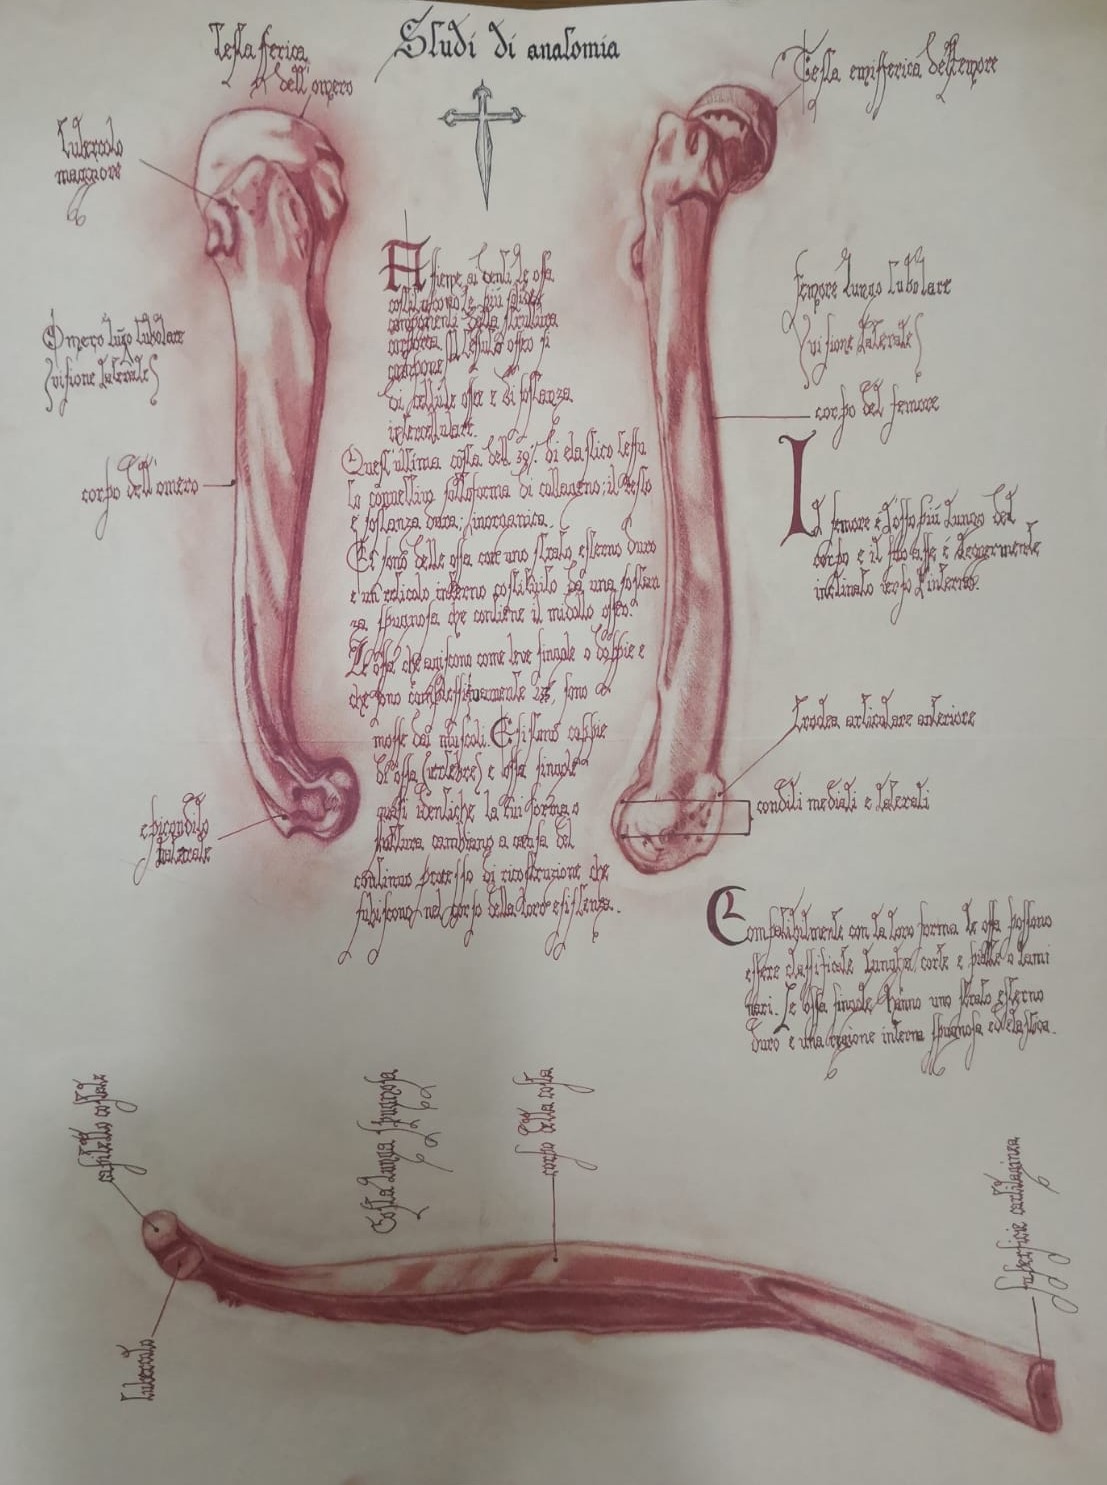 Studi di anatomia
Testa sferica
dell'omero
Tubercolo
maggiore
Omero lungo tubolare
(visione laterale)
corpo dell'omero
epicondilo
laterale
Assieme ai denti le ossa
costituiscono le più solide
componenti della struttura
corporea. Il tessuto osseo si
compone
di cellule ossee e di sostanza
intercellulare.
Quest'ultima consta dell'39% di elastico tessu
to connettivo sottoforma di collageno; il resto
è sostanza dura; inorganica.
Ci sono delle ossa con uno strato esterno duro
e un reticolo interno costituito da una sostan
za spugnosa che contiene il midollo osseo.
Le ossa che agiscono come leve singole o doppie e
che sono complessivamente sono
mosse dai muscoli. Esistono coppie
di ossa (vertebre) e ossa singole
quasi identiche la cui forma o
struttura cambiano a causa del
continuo processo di ricostruzione che
subiscono nel corso della loro esistenza.
Testa emisferica del femore
femore lungo tubolare
(visione laterale)
corpo del femore
Il femore è l'osso più lungo del
corpo e il suo asse è leggermente
inclinato verso l'interno.
troclea articolare anteriore
condili mediali e laterali
Compatibilmente con la loro forma le ossa possono
essere classificate lunghe, corte e piatte o lami
nari. Le ossa singole hanno uno strato esterno
duro e una regione interna spugnosa ed elastica.
capitello costale
Costa lunga spugnosa
corpo della costa
superficie cartilaginea
tubercolo